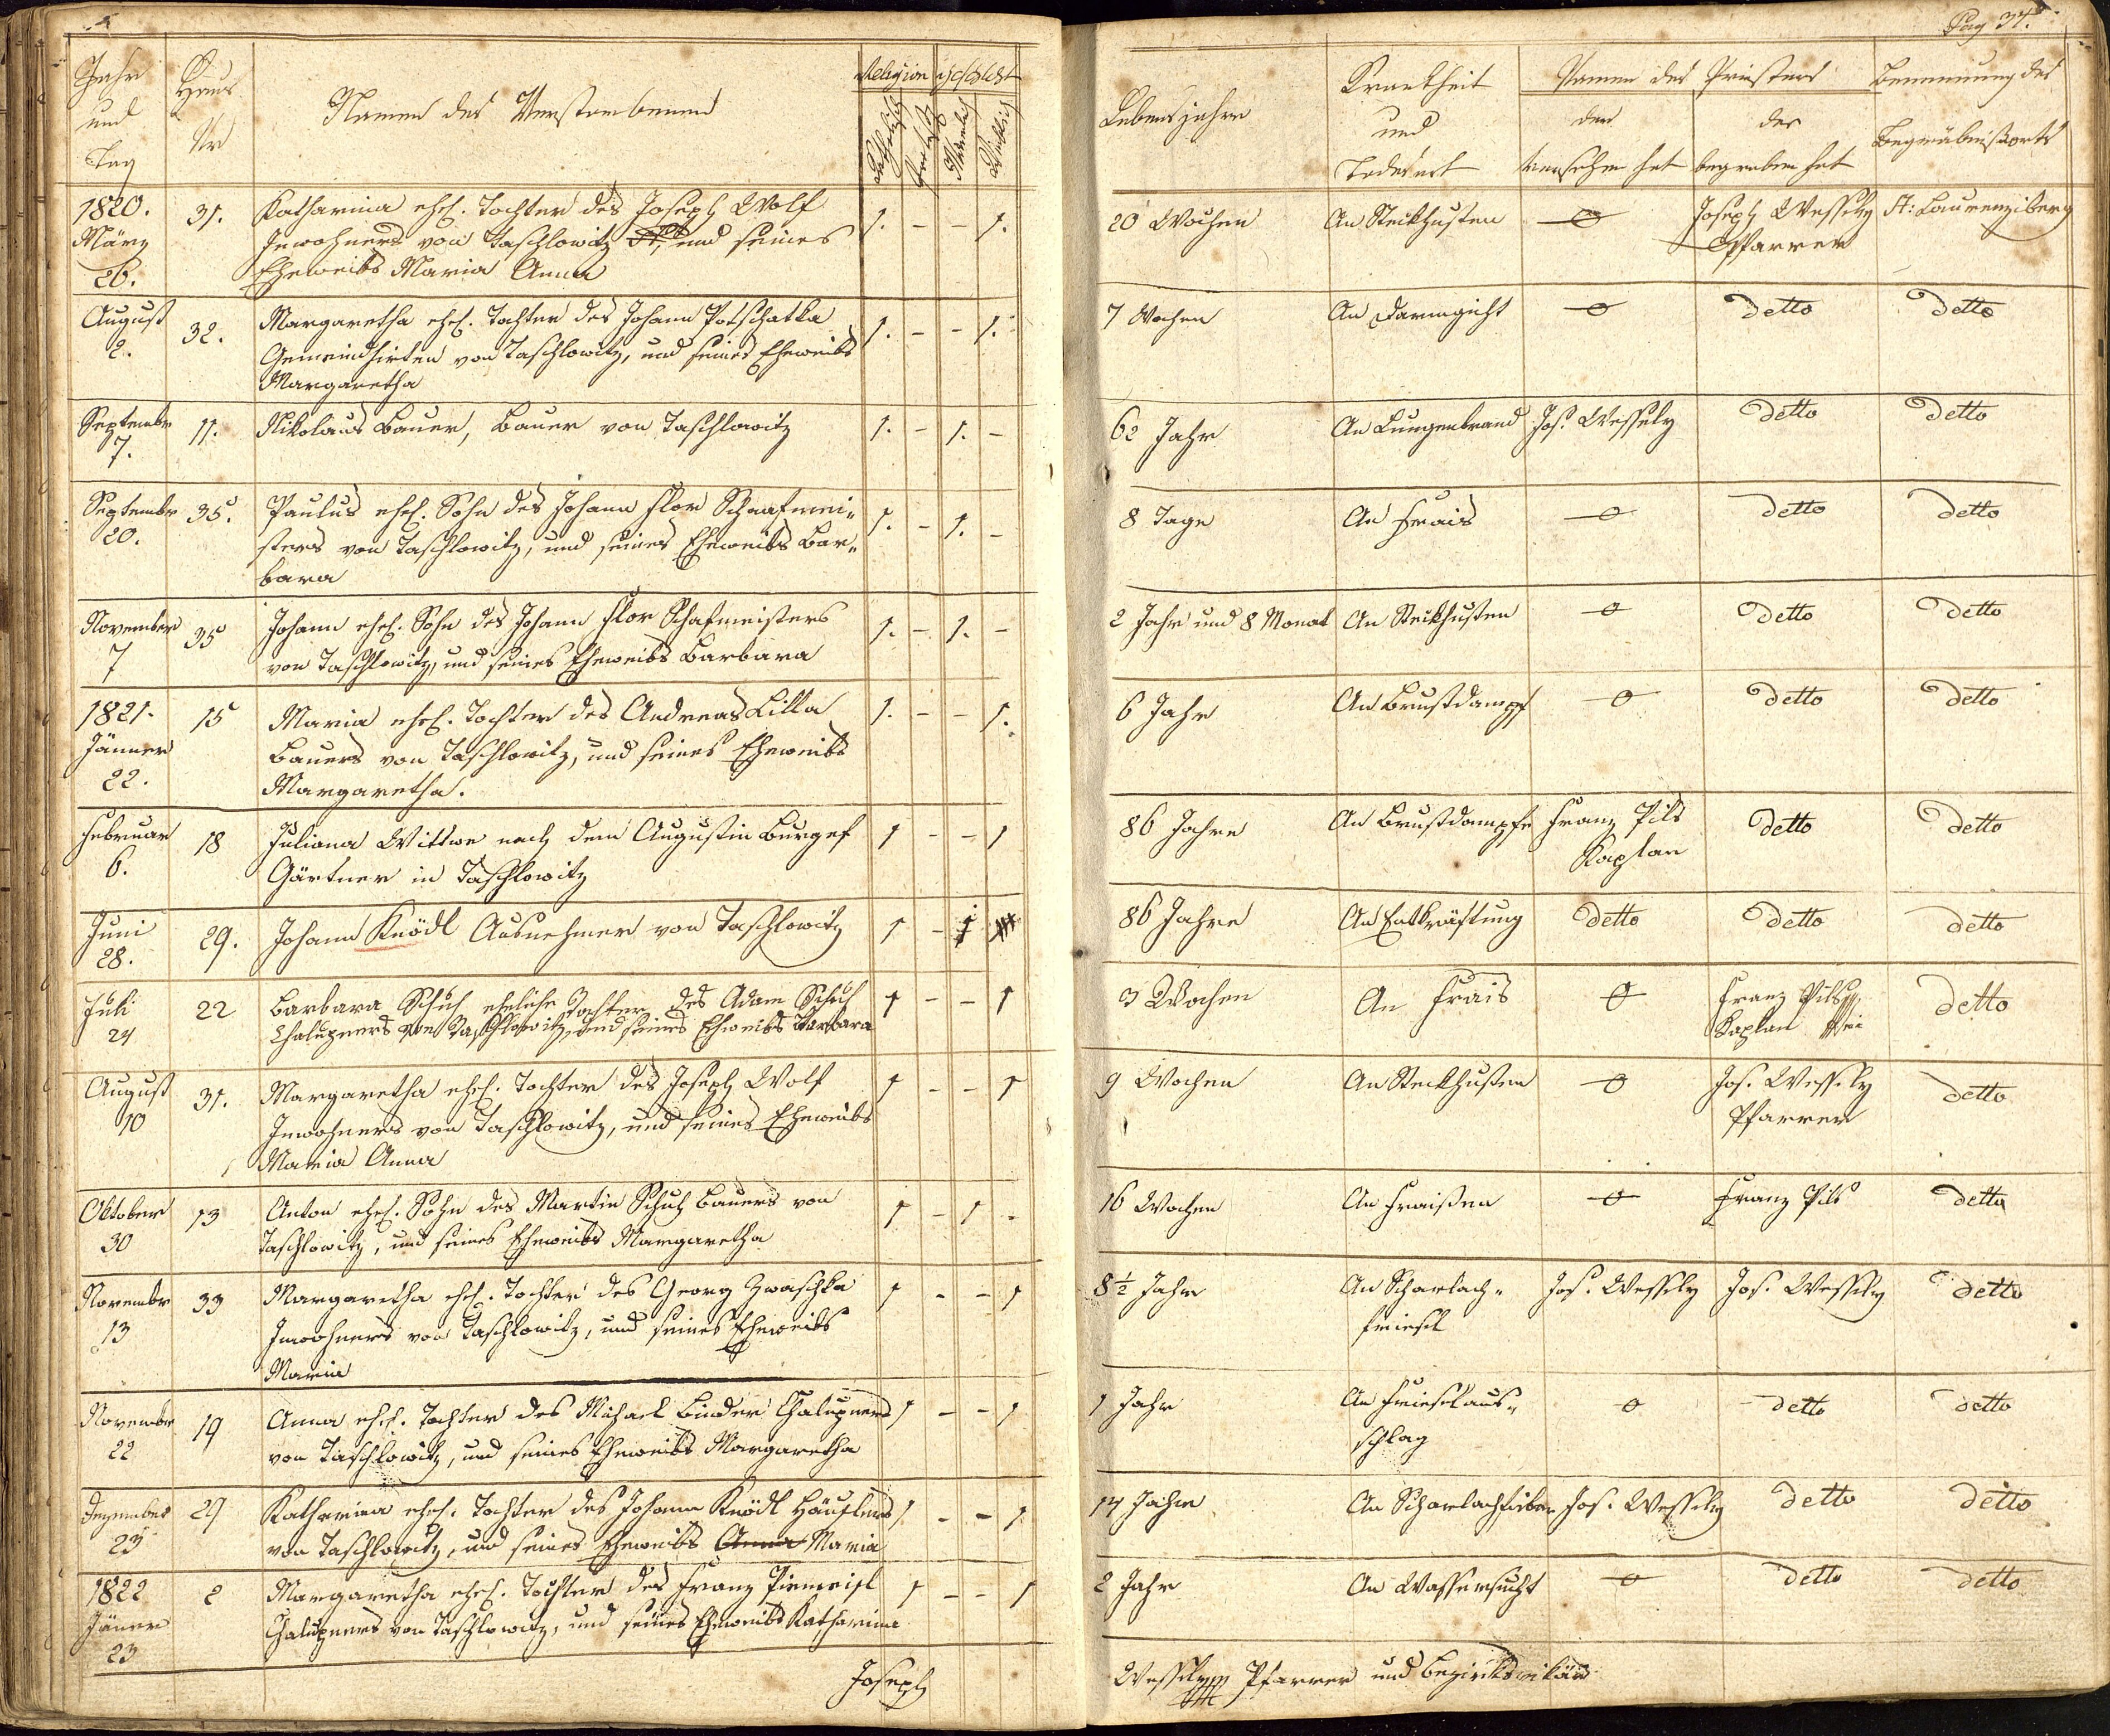 Pag 34.
Jahr und Tag
Haus Nr
Namen des Verstorbenen
Religion
Geschlecht
Katholisch
Männlich
Weiblich
Lebensjahre
Krankheit und Todesart
Namen des Priesters
der versehen hat
der begraben hat
Benennung des Begräbnißorts
1820. März 26. 31. Katharina ehel. Tochter des Joseph Wolf 1. - - 1. 20 Wochen An Steckhusten o Joseph Wessely St: Laurenziberg
Inwohners von Taschlowitz und seines Pfarrer
Eheweibs Maria Anna
August 2. 32. Margaretha ehel. Tochter des Johann Potschatka 1. - - 1. 7 Wochen An Darmgicht o detto detto
Gemeindhirten von Taschlowitz, und seines Eheweibs
Margaretha
Septembr 7. 11. Nikolaus Bauer, Bauer von Taschlowitz 1. - 1. - 62 Jahr An Lungenbrand Jos. Wessely detto detto
Septembr 20. 35. Paulus ehel. Sohn des Johann Flor Schaafmei„ 1. - 1. - 8 Tage An Frais o detto detto
sters von Taschlowitz, und seines Eheweibs Bar„
bara
November 7 35 Johann ehel. Sohn des Johann Flor Schafmeisters 1. - 1. - 2 Jahr und 8 Monat An Steckhusten o detto detto
von Taschlowitz, und seines Eheweibs Barbara
1821. Jänner 22. 15 Maria ehel. Tochter des Andreas Lilla 1. - - 1. 6 Jahr An Brustdampf o detto detto
Bauers von Taschlowitz, und seines Eheweibs
Margaretha.
Februar 6. 18 Juliana Wittwe nach dem Augustin Burgel 1 - - 1 86 Jahre An Brustdampfe Franz Pils detto detto
Gärtner in Taschlowitz Kaplan
Juni 28. 29. Johann Knödl Ausnehmer von Taschlowitz 1 - 1 86 Jahre An Entkräftung detto detto detto
Juli 24 22 Barbara Schuh eheliche Tochter des Adam Schuh 1 - - 1 3 Wochen An Frais o Franz Pils detto
Chalupners von Taschlowitz, und seines Eheweibs Barbara Kaplan
August 10 31. Margaretha ehel. Tochter des Joseph Wolf 1 - - 1 9 Wochen An Steckhusten o Jos. Wessely detto
Inwohners von Taschlowitz, und seines Eheweibs Pfarrer
Maria Anna
Oktober 30 13 Anton ehel. Sohn des Martin Schuh Bauers von 1 - 1 - 16 Wochen An Fraißen o Franz Pils detto
Taschlowitz, und seines Eheweibs Margaretha
Novembr 13 33 Margaretha ehel. Tochter des Georg Zwaschka 1 - - 1 8½ Jahr An Scharlach„ Jos. Wessely Jos. Wessely detto
Inwohners von Taschlowitz, und seines Eheweibs friesel
Maria
Novembr 22 19 Anna ehel. Tochter des Michael Binder Chalupners 1 - - 1 1 Jahr An Frieselaus„ o detto detto
von Taschlowitz, und seines Eheweibs Margaretha schlag
Dezember 23 29 Katharina ehel. Tochter des Johann Knödl Häuslers 1 - - 1 14 Jahre An Scharlachfieber Jos. Wessely detto detto
von Taschlowitz, und seines Eheweibs Anna Maria
1822 Jäner 23 2 Margaretha ehel. Tochter des Franz Piemeisl 1 - - 1 2 Jahr An Wassersucht o detto detto
Chalupners von Taschlowitz, und seines Eheweibs Katharina
Joseph Wessely Pfarrer und Bezirksvikär